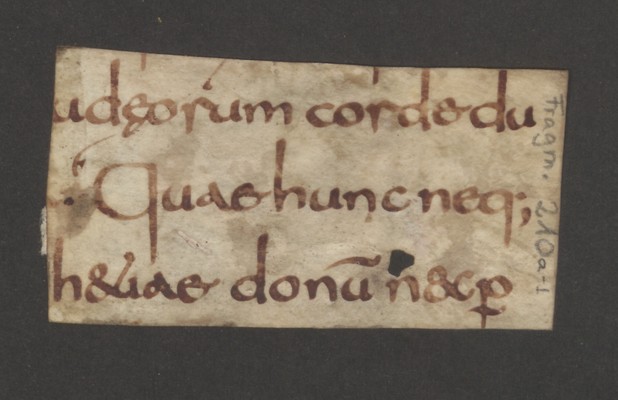 udęorum corde du
Quae hunc neq;
h&iae donū nec ꝑ
Fragm. 210a-1